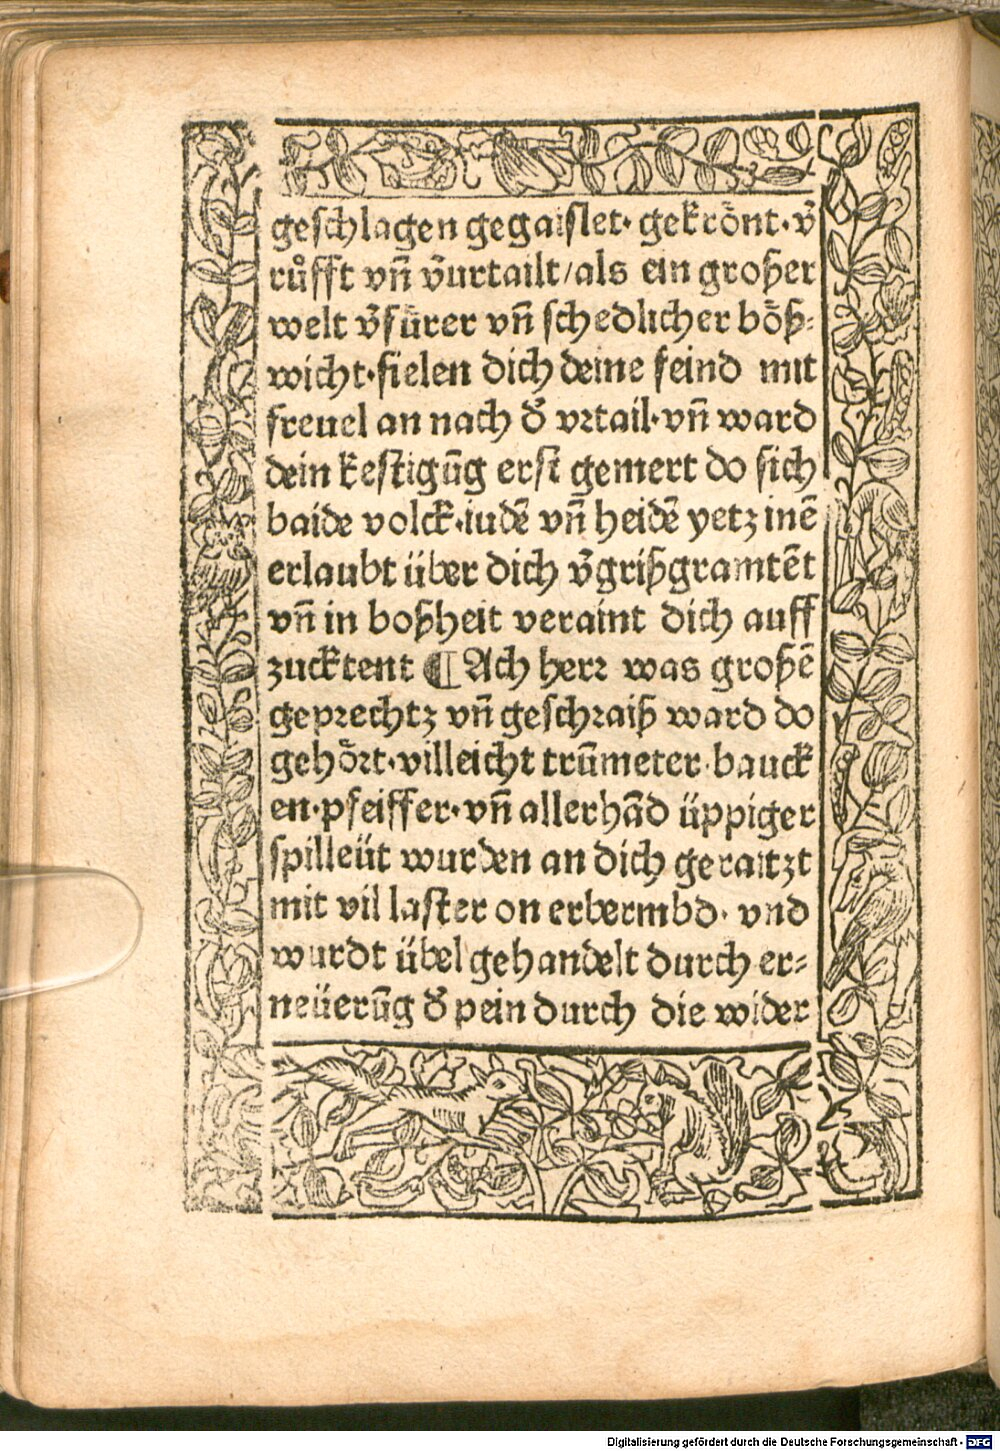 geschlagen gegaislet· gekrönt· vͮ
růfft vn̄ vͮurtailt/als ein großer
welt vͮfürer vn̄ schedlicher böß⸗
wicht·fielen dich deine feind mit
freuel an nach dͮ vꝛtail·vn̄ ward
dein kestigūg erst gemert do sich
baide volck·iudē vn̄ heidē yetz inē
erlaubt über dich vͮgrißgramtēt
vn̄ in boßheit veraint dich auff
zucktent ¶ Ach herꝛ was großē
gepꝛechtz vn̄ geschꝛaiß ward do
gehöꝛt·villeicht trūmeter·bauck
en·pfeiffer·vn̄ allerhād üppiger
spilleüt wurden an dich geraitzt
mit vil laster on erbermbd· vnd
wurdt übel gehandelt durch er⸗
neüerūg dͮ pein durch die wider
Digitalisierung gefördert durch die Deutsche Forschungsgemeinschaft - DFG